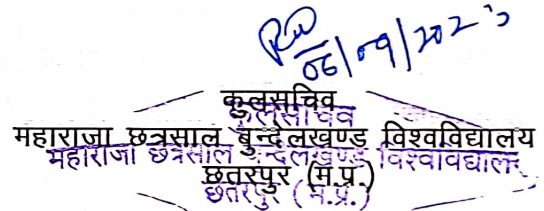 06/09/2023
कुलसचिव
महाराजा छत्रसाल बुन्देलखण्ड विश्वविद्यालय
छतरपुर (म.प्र.)
कुलसचिव
महाराजा छत्रसाल बुन्देलखण्ड विश्वविद्यालय
छतरपुर (म.प्र.)